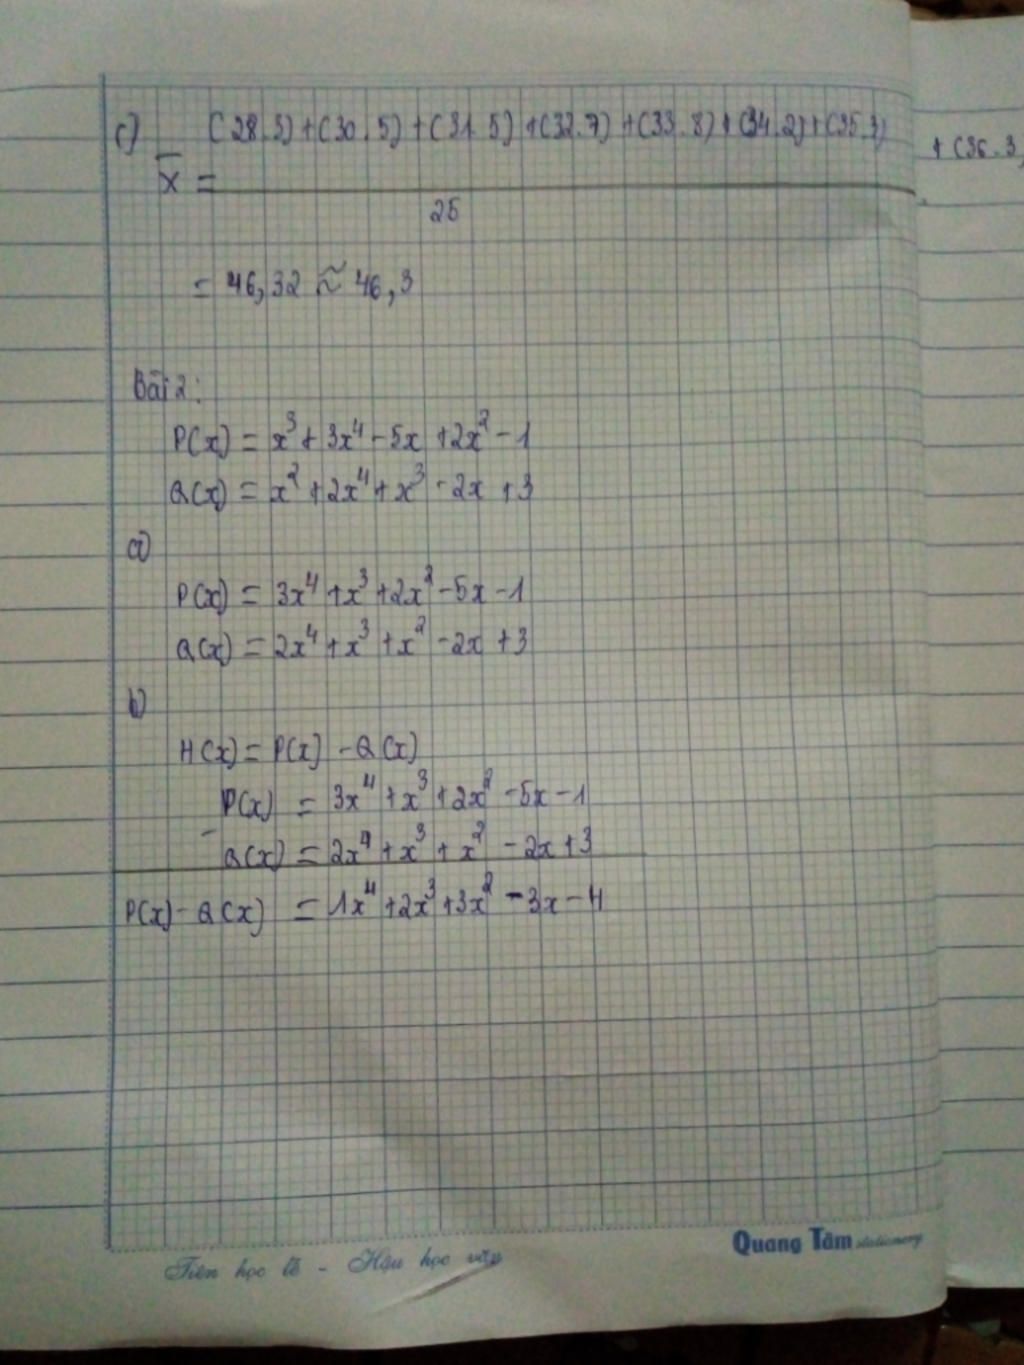 c)
(28.3)+(30.5)+(31.5)+(32.7)+(33.8)+(34.2)+(35.3) +(36.3)
x̄ =
25
= 46,32 ≈ 46,3
Bài 2:
P(x) = x³ + 3x⁴ - 5x + 2x² - 1
Q(x) = x² + 2x⁴ + x³ - 2x + 3
a)
P(x) = 3x⁴ + x³ + 2x² - 5x - 1
Q(x) = 2x⁴ + x³ + x² - 2x + 3
b)
H(x) = P(x) - Q(x)
P(x) = 3x⁴ + x³ + 2x² - 5x - 1
-
Q(x) = 2x⁴ + x³ + x² - 2x + 3
P(x) - Q(x) = 1x⁴ + 2x³ + 3x² - 3x - 4
Quang Tâm stationery
Tiên học lễ - Hậu học văn